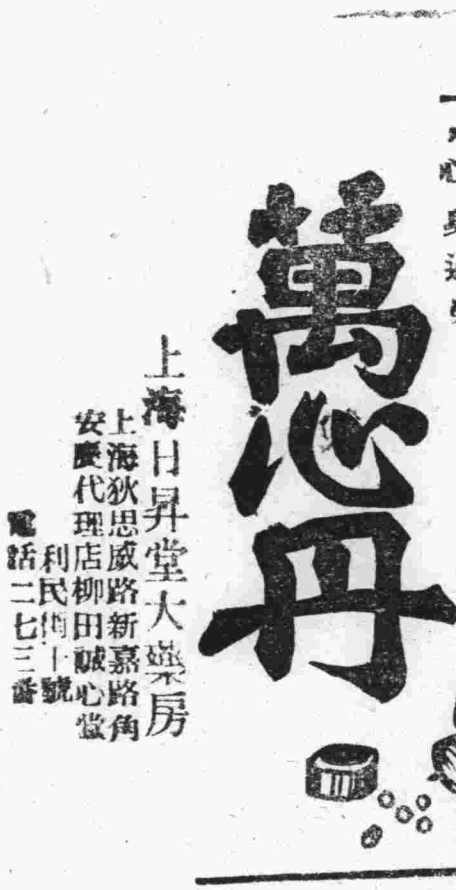 萬心丹
上海日昇堂大藥房
上海狄思威路新嘉路角
安慶代理店柳田誠心堂
利民街十號
電話二七三番